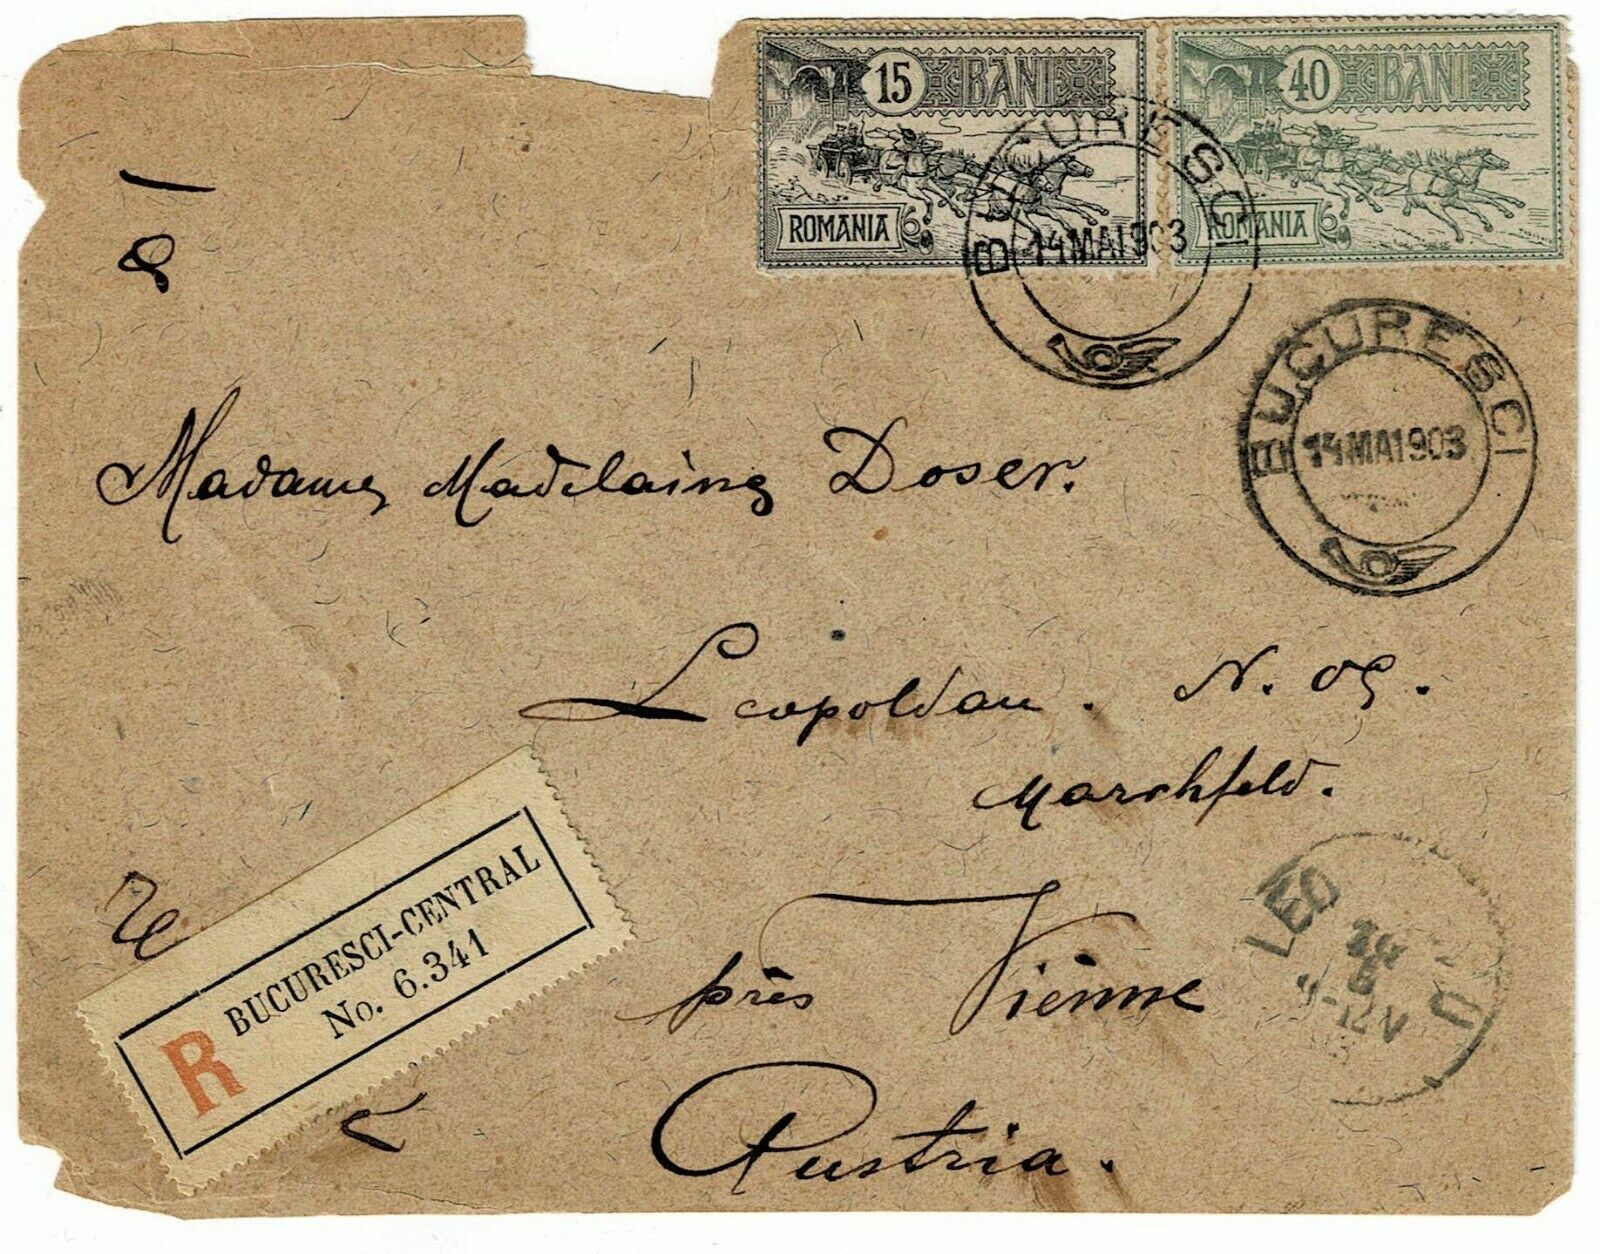 15 BANI
ROMANIA
40 BANI
ROMANIA
BUCURESCI
14 MAI 903
BUCURESCI
14 MAI 903
81
Madame Madelaine Doser.
Leopoldau. N. 05.
Marchfeld.
près Vienne
Austria.
R
BUCURESCI-CENTRAL
No. 6.341
LEO U